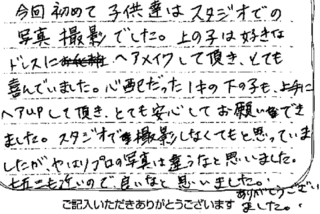 今回初めて子供達はスタジオでの
写真撮影でした。上の子は好きな
ドレスにヘアメイクして頂き、とても
喜んでいました。心配だった1才の下の子も、上手に
ヘアUPして頂き、とても安心してお願いできました。
スタジオで撮影しなくてもと思っていま
したがやはりプロの写真は違うなと思いました。
七五三も近いので、良いなと思いました。
ありがとうござい
ました。
ご記入いただきありがとうございます